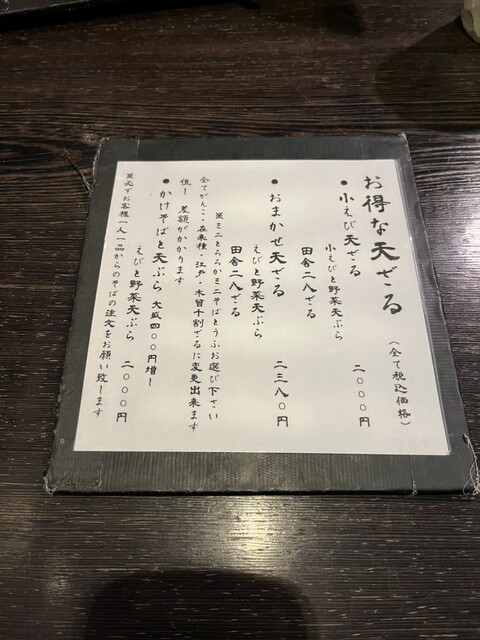 お得な天ざる
(全て税込価格)
● 小えび天ざる
小えびと野菜天ぷら
二〇〇〇円
田舎二八ざる
● おまかせ天ざる
えびと野菜天ぷら
二三八〇円
田舎二八ざる
※ミニとろろかミニそばとうふお選び下さい
全てがんこ・在来種・江戸・木曽十割ざるに変更出来ます
但し 差額がかかります
● かけそばと天ぷら 大盛四〇〇円増し
えびと野菜天ぷら 二〇〇〇円
※必ずお客様一人一品からのそばの注文をお願い致します